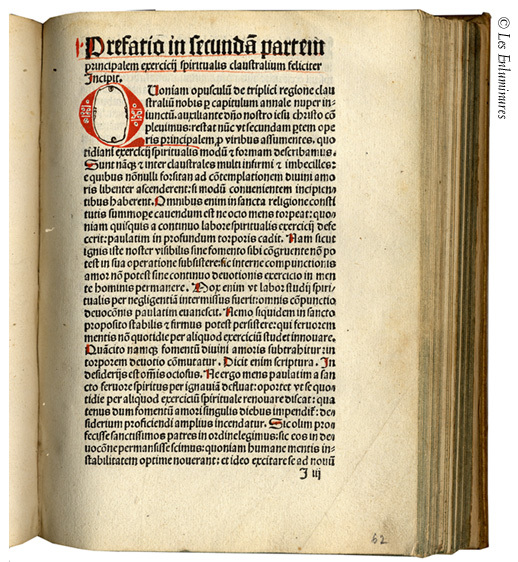 Prefatio in secundã partem
principalem exercicij spiritualis claustralium feliciter
Incipit.
QUoniam opusculũ de triplici regione clau
straliũ nobis ꝑ capitulum annale nuper in⸗
iunctũ, auxiliante dño nostro iesu christo cõ
pleuimus: restat nũc vt secundam ꝑtem ope
ris principalem, ꝓ viribus assumentes, quo
tidiani exercicij spiritualis modũ & formam describamus.
Sunt nãqꝫ & inter claustrales multi infirmi & imbecilles:
e quibus nõnulli forsitan ad cõtemplationem diuini amo
ris libenter ascenderent: si modũ conuenientem incipien⸗
tibus haberent. Omnibus enim in sancta religione consti
tutis summope cauendum est ne ocio mens torpeat: quo⸗
niam quisquis a continuo labore spiritualis exercicij defe
cerit: paulatim in profundum torporis cadit. Nam sicut
ignis iste noster visibilis sine fomento sibi cõgruente nõ po
test in sua operatione subsistere: sic interne compunctionis
amor nõ potest sine continuo deuotionis exercicio in men
te hominis permanere. Mox enim vt labor studij spiri⸗
tualis per negligentiã intermissus fuerit: omnis cõpunctio
deuocõnis paulatim euanescit. Nemo siquidem in sancto
proposito stabilis & firmus potest persistere: qui feruorem
mentis nõn quotidie per aliquod exerciciũ studet innouare.
Quãcito namqꝫ fomentũ diuini amoris subtrahitur: in
torporem deuotio cõmutatur. Dicit enim scriptura. In
desiderijs est om̃is ociosus. Ne ergo mens paulatim a san
cto feruore spiritus per ignauiã defluat: oportet vt se quo⸗
tidie per aliquod exerciciũ spirituale renouare discat: qua
tenus dum fomentũ amori singulis diebus impendit᷑: de⸗
siderium proficiendi amplius incendatur. Sic olim pro⸗
fecisse sanctissimos patres in ordine legimus: sic eos in de⸗
uocõne permansisse scimus: quoniam humane mentis in⸗
stabilitatem optime nouerant: et ideo excitare se ad nouũ
I iij
62
© Les Enluminures